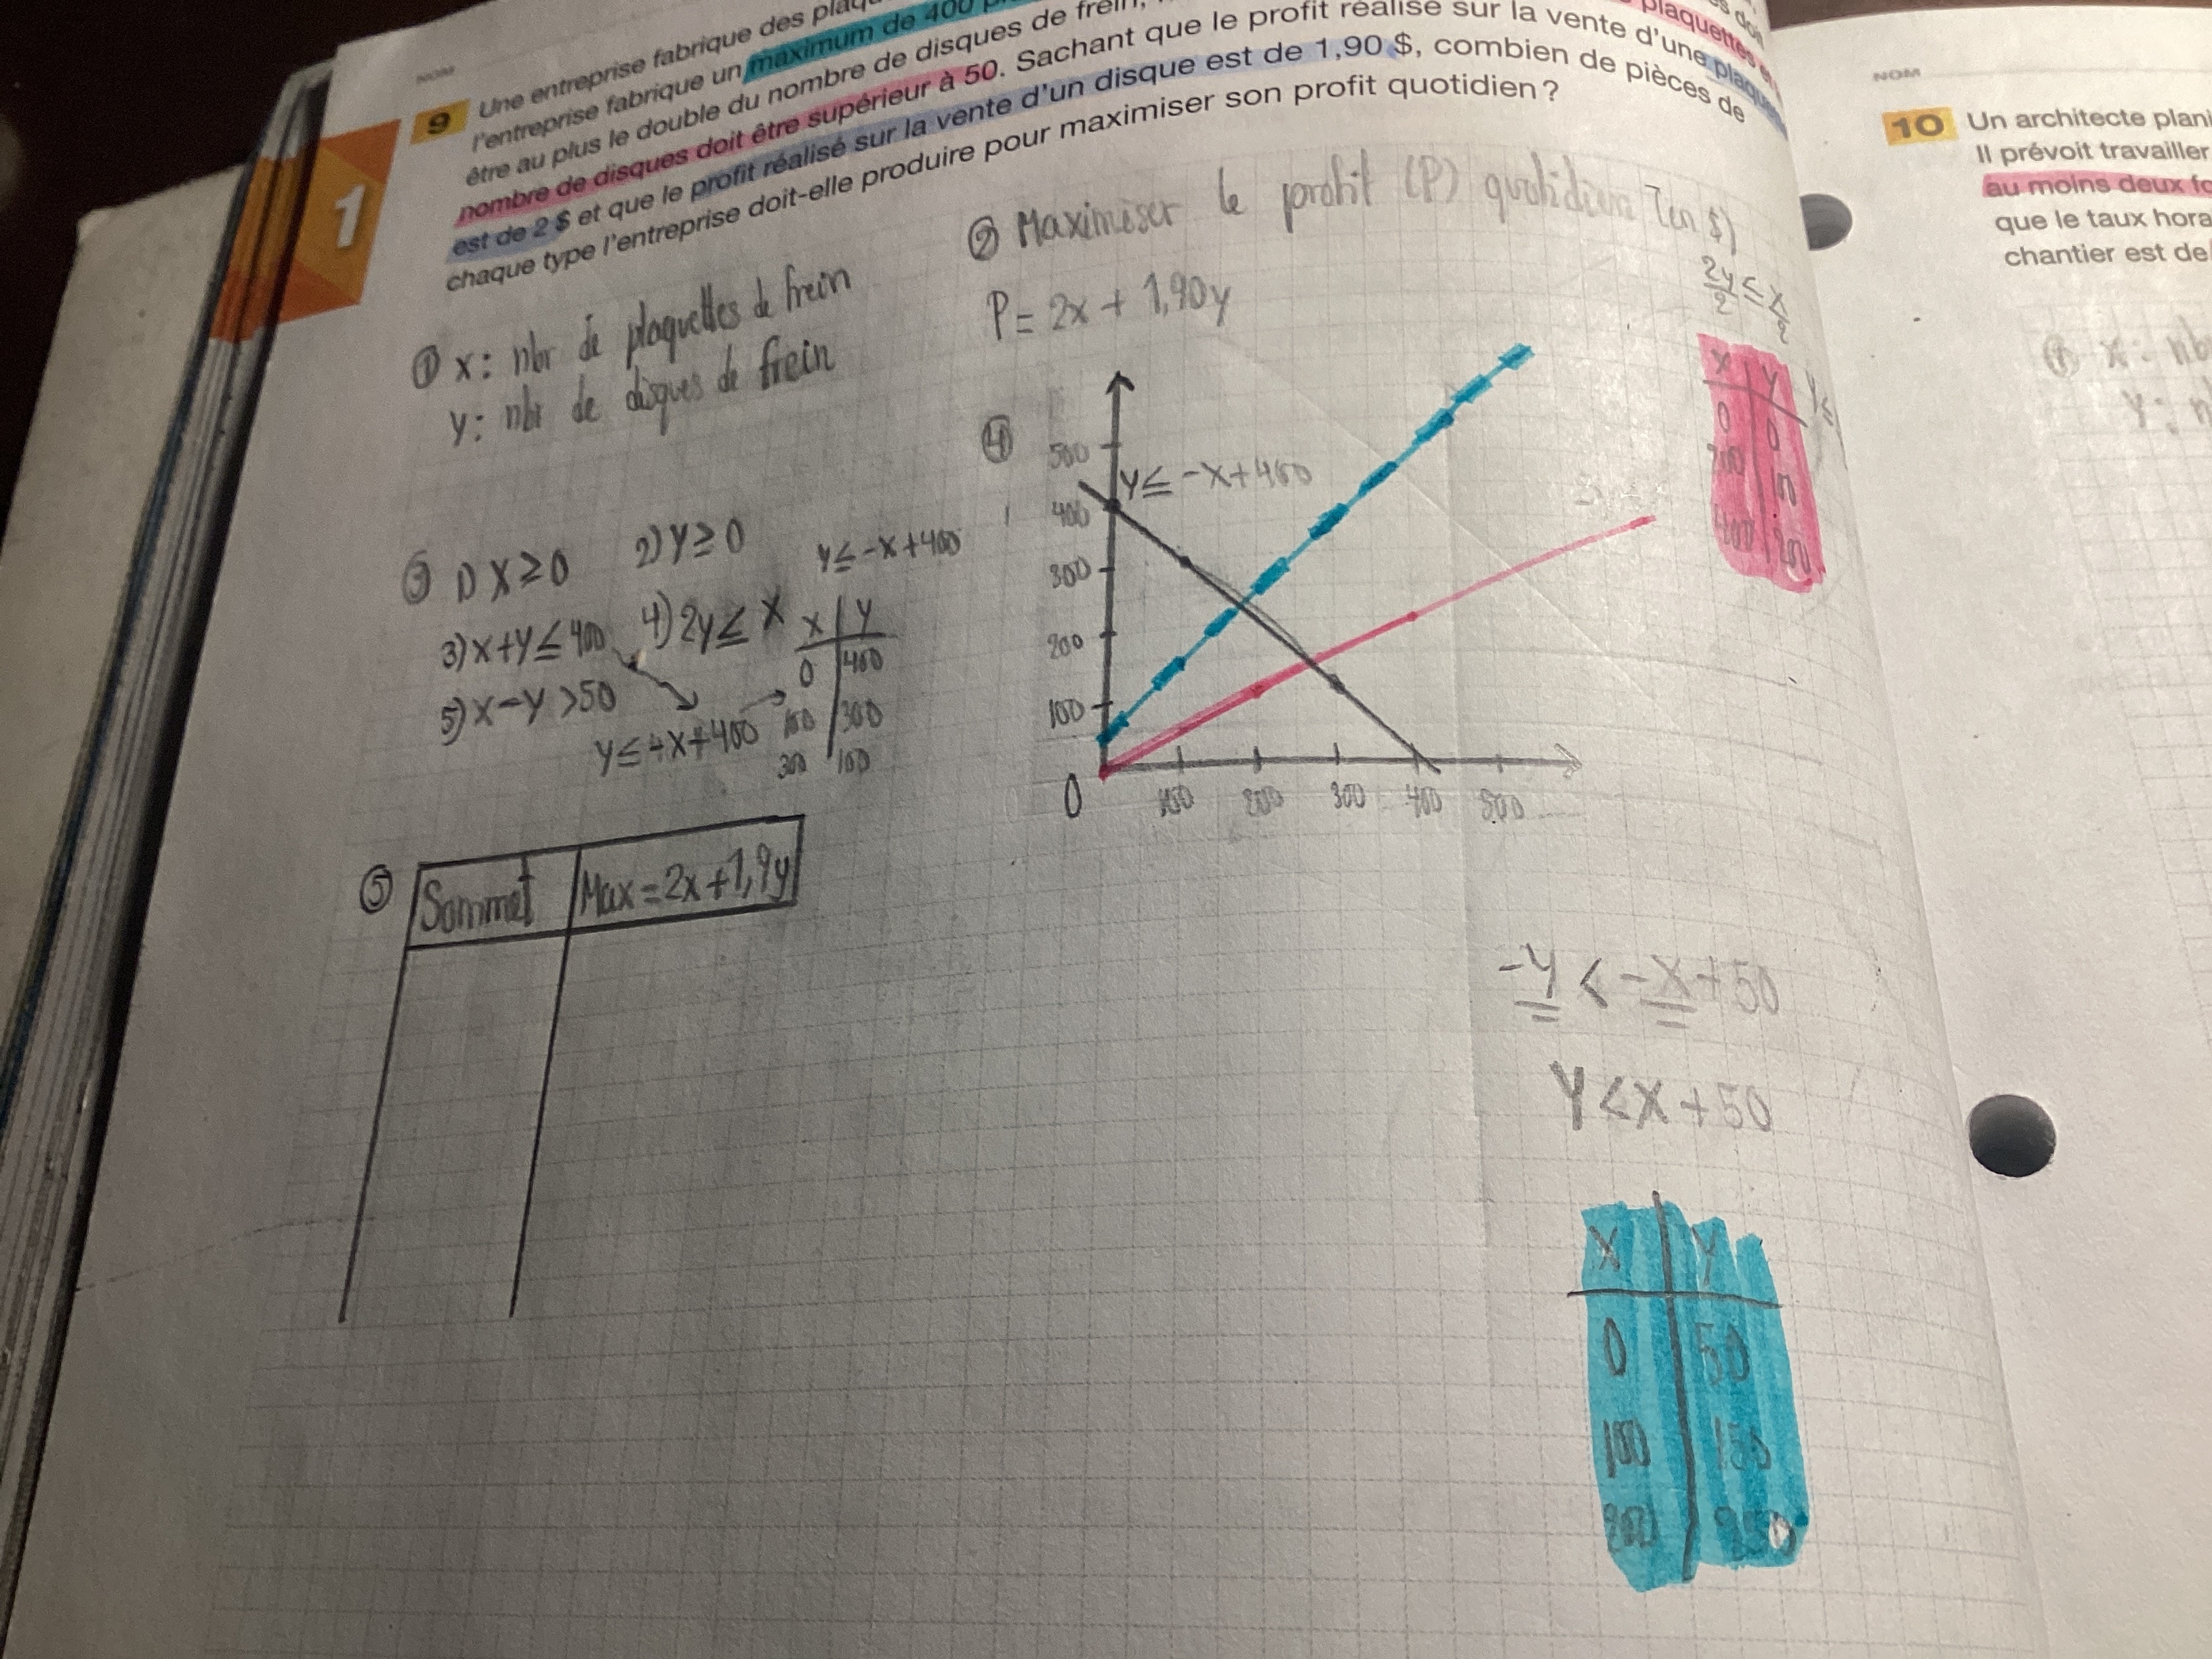 NOM
9 Une entreprise fabrique des
l'entreprise fabrique un maximum de 400
être au plus le double du nombre de disques de frein,
plaquettes
nombre de disques doit être supérieur à 50. Sachant que le profit réalisé sur la vente d'une
est de 2 $ et que le profit réalisé sur la vente d'un disque est de 1,90 $, combien de pièces de
chaque type l'entreprise doit-elle produire pour maximiser son profit quotidien ?
1
① x : nbr de plaquettes de frein
y : nbr de disques de frein
② Maximiser le profit (P) quotidien (en $)
P = 2x + 1,90y
2y/2 ≤ x/2
x | y
0 | 0
400 | 200
y ≤
③ 1) x ≥ 0 2) y ≥ 0
y ≤ -x+400
3) x+y ≤ 400 4) 2y ≤ x
5) x-y > 50
x | y
0 | 400
100 | 300
300 | 100
④
y ≤ -x+400
500
400
300
200
100
0
100 200 300 400 500
⑤ Sommet | Max = 2x+1,9y
-y < -x+50
y < x+50
x | y
0 | 50
100 | 150
200 | 250
NOM
10 Un architecte
Il prévoit travailler
au moins deux
que le taux
chantier est de
x :
y :